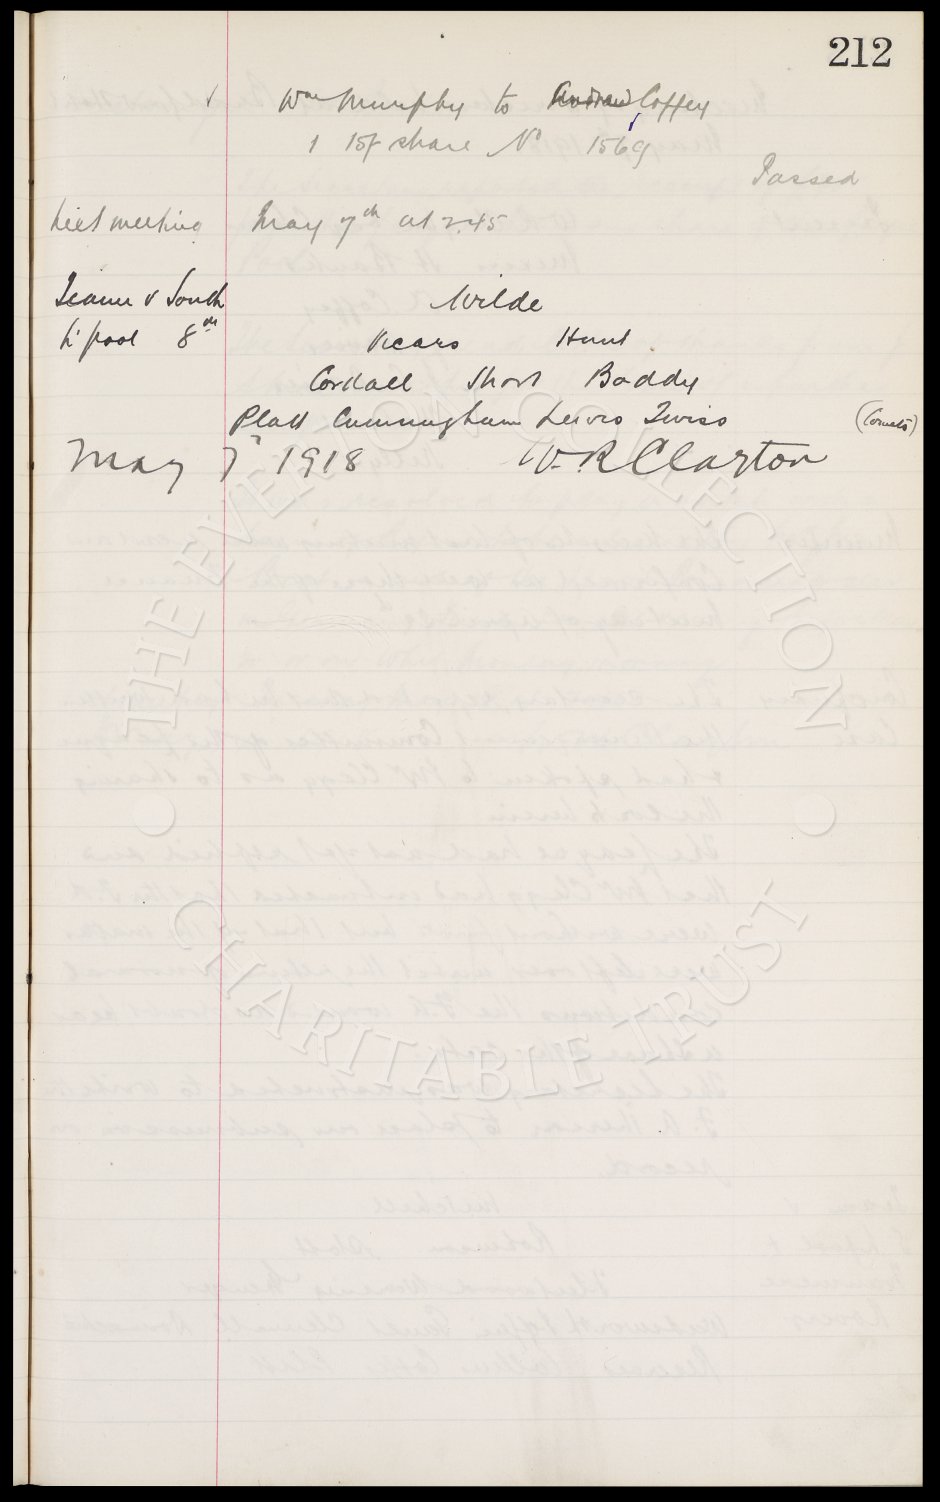 212
Wm Murphy to Andrew Coffey
1 1st share No 1569
Passed
Next meeting May 7th at 2.45
Teams v South Wilde
L'pool 8th Vicars Hunt
Cordall Short Baddy
Platt Cunningham Lewis Twiss (Comets)
May 7th 1918 W. R Clayton
THE EVERTON COLLECTION
CHARITABLE TRUST